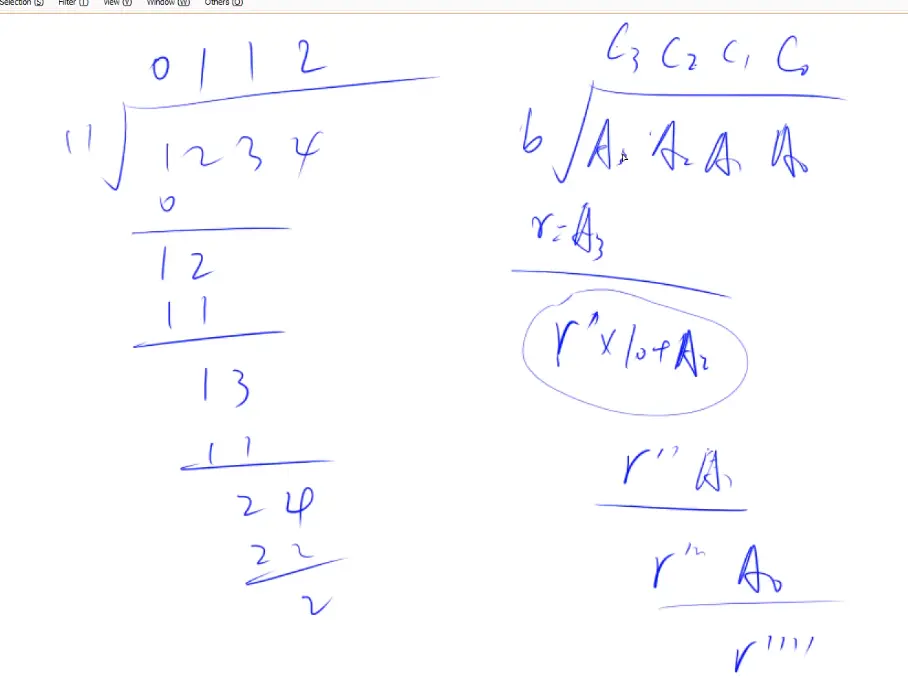 Selection (S) Filter (T) View (V) Window (W) Others (O)
0 1 1 2
11 1 2 3 4
0
1 2
1 1
1 3
1 1
2 4
2 2
2
C3 C2 C1 C0
b A3 A2 A1 A0
r=A3
r'×10+A2
r'' A1
r''' A0
r''''